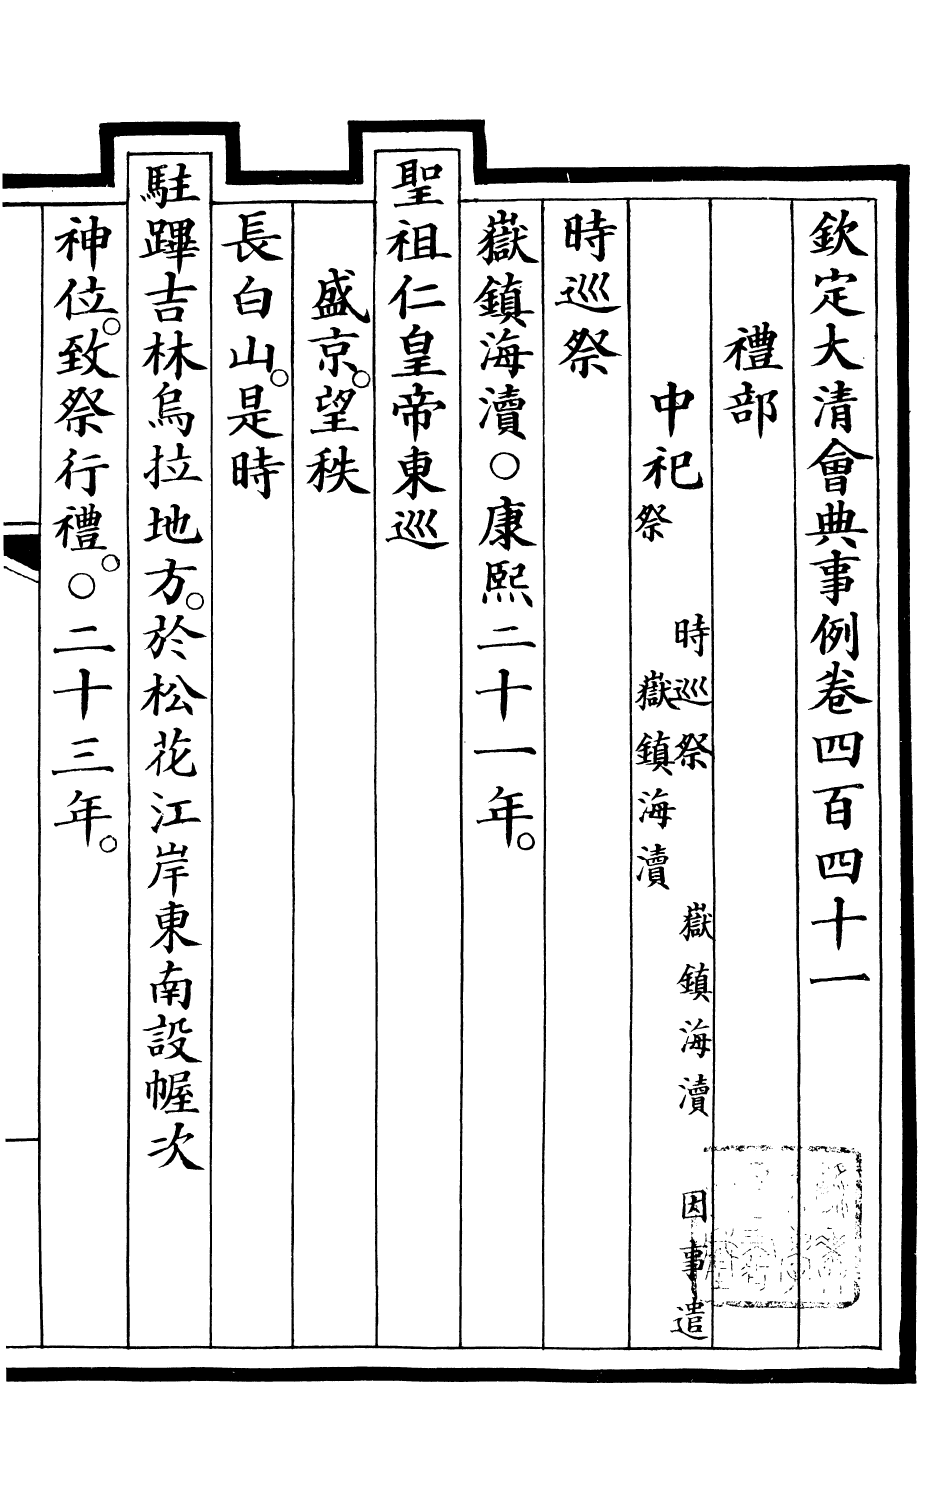 欽定大清會典事例卷四百四十一
禮部
中祀 時巡祭 嶽鎮海瀆 因事遣
祭 嶽鎮海瀆
時巡祭
嶽鎮海瀆○康熙二十一年。
聖祖仁皇帝東巡
盛京。望秩
長白山。是時
駐蹕吉林烏拉地方。於松花江岸東南設幄次
神位。致祭行禮。○二十三年。